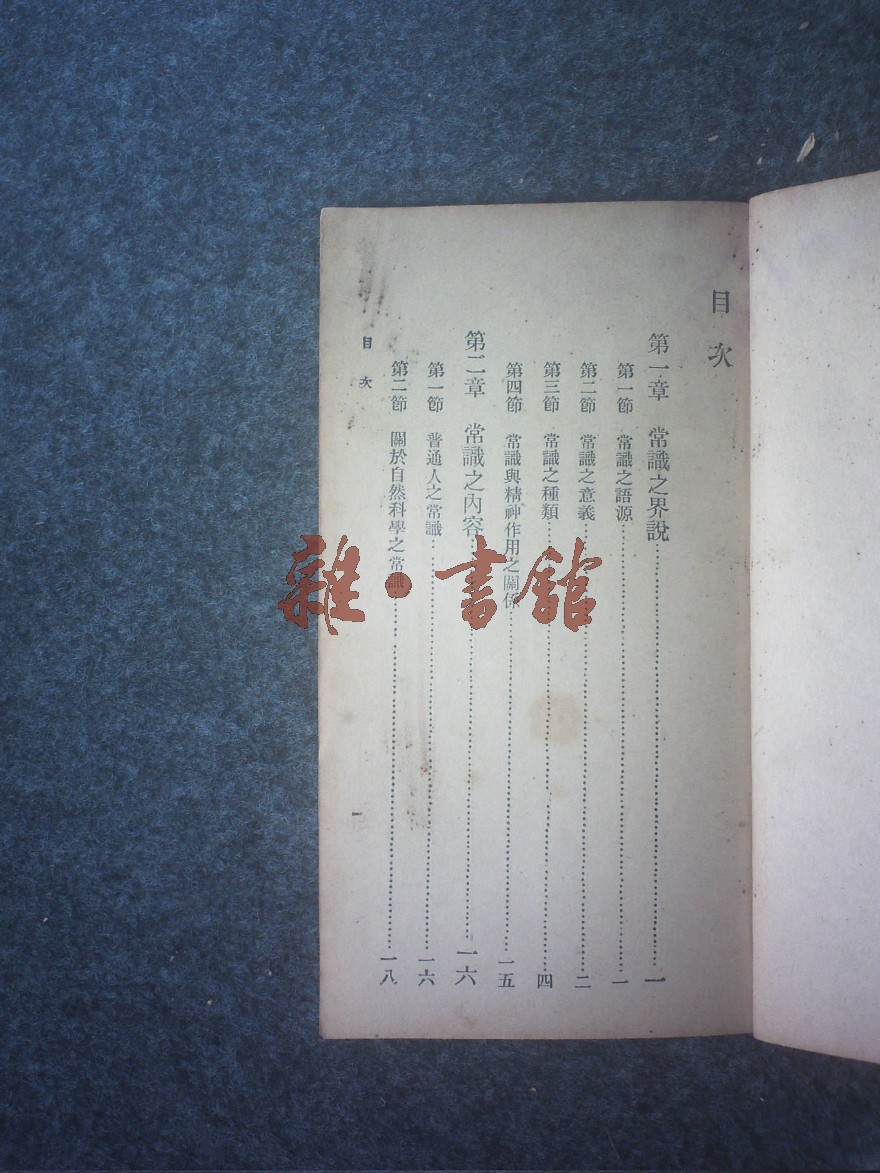 目次
第一章　常識之界說……一
第一節　常識之語源……一
第二節　常識之意義……二
第三節　常識之種類……四
第四節　常識與精神作用之關係……一五
第二章　常識之內容……一六
第一節　普通人之常識……一六
第二節　關於自然科學之常識……一八
目次
一
雜·書館